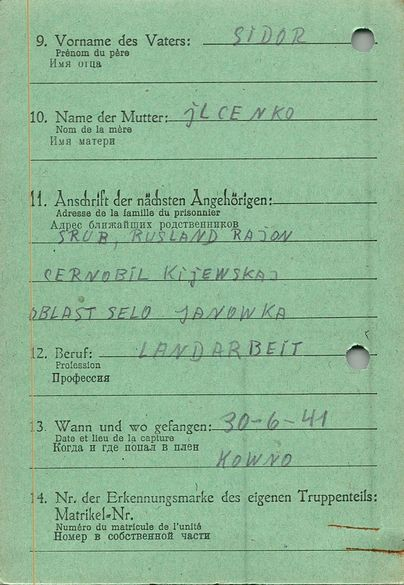 9. Vorname des Vaters: SIDOR
Prénom du père
Имя отца
10. Name der Mutter: jLCENKO
Nom de la mère
Имя матери
11. Anschrift der nächsten Angehörigen:
Adresse de la famille du prisonnier
Адрес ближайших родственников
SRUB, RUSLAND RAJON
CERNOBIL KIJEWSKAJ
OBLAST SELO JANOWKA
12. Beruf: LANDARBEIT
Profession
Профессия
13. Wann und wo gefangen: 30-6-41
Date et lieu de la capture
Когда и где попал в плен
KOWNO
14. Nr. der Erkennungsmarke des eigenen Truppenteils:
Matrikel-Nr.
Numéro du matricule de l'unité
Номер в собственной части